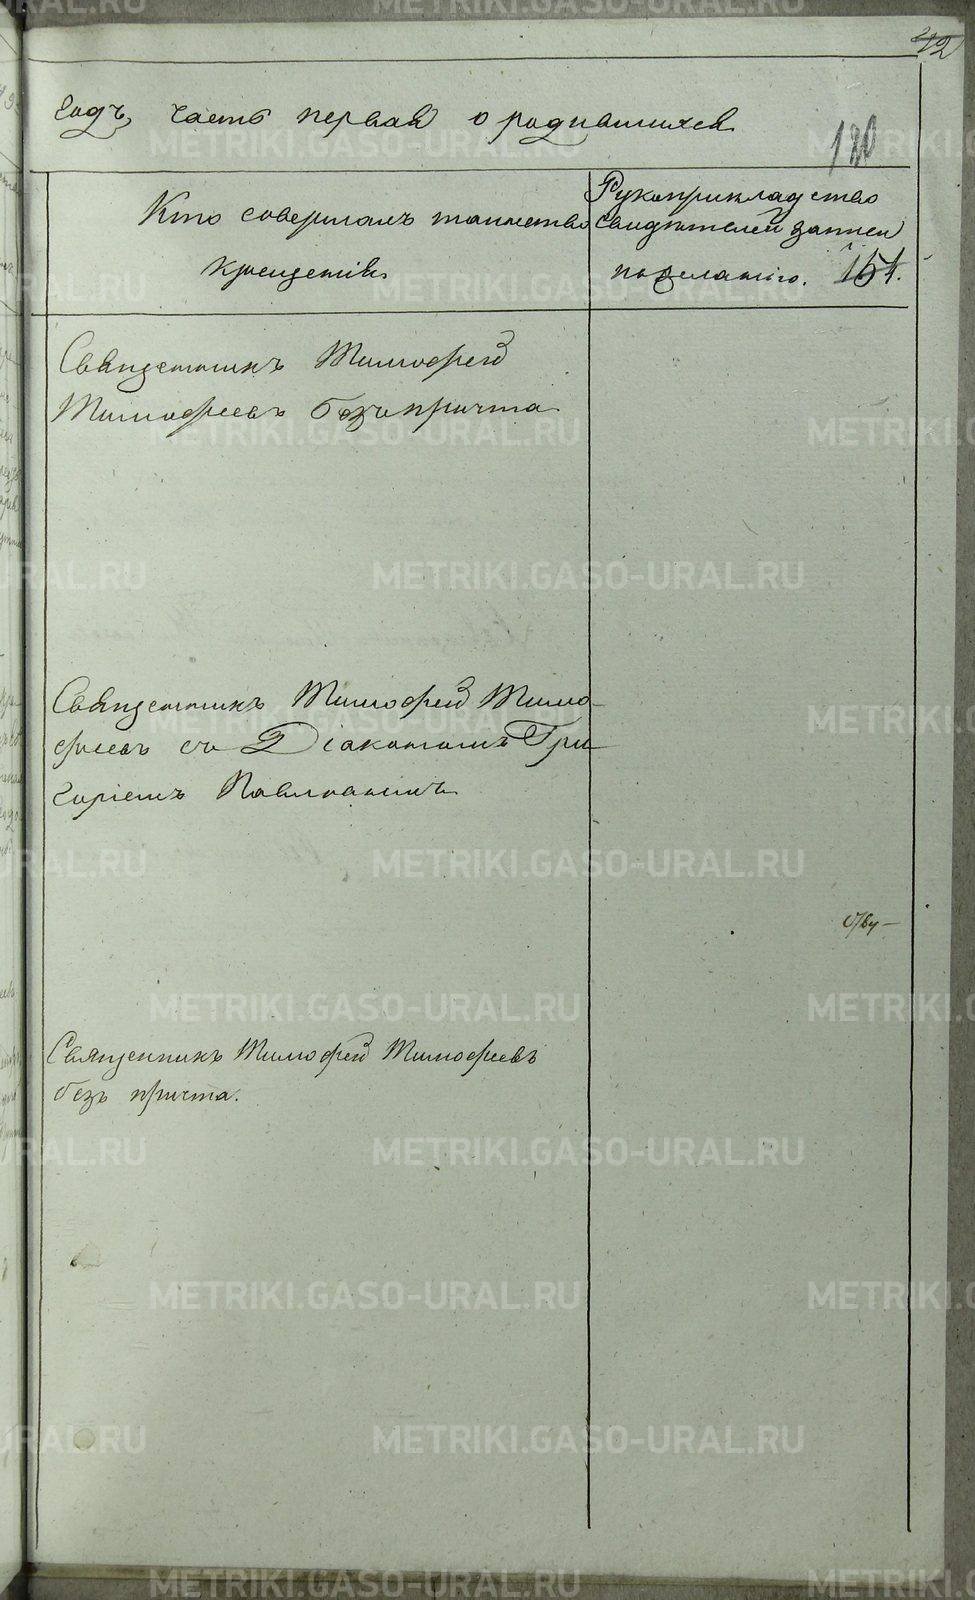 42
годъ, часть первая о родившихся
120
Кто совершалъ таинство
крещенія.
Рукоприкладство
свидѣтелей записи
по желанію. 151.
Священникъ Тимофей
Тимофеевъ безъ причта
Священникъ Тимофей Тимо-
феевъ съ Діакономъ Гри
горіемъ Павловымъ
Священникъ Тимофей Тимофеевъ
безъ причта.
METRIKI.GASO-URAL.RU